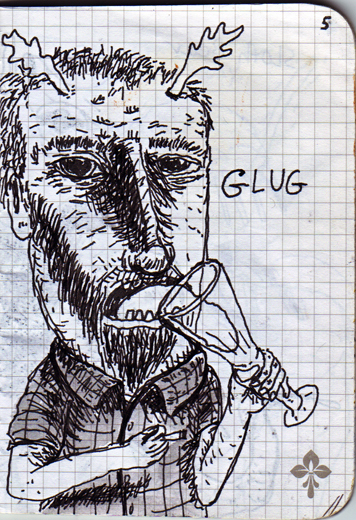 5
GLUG